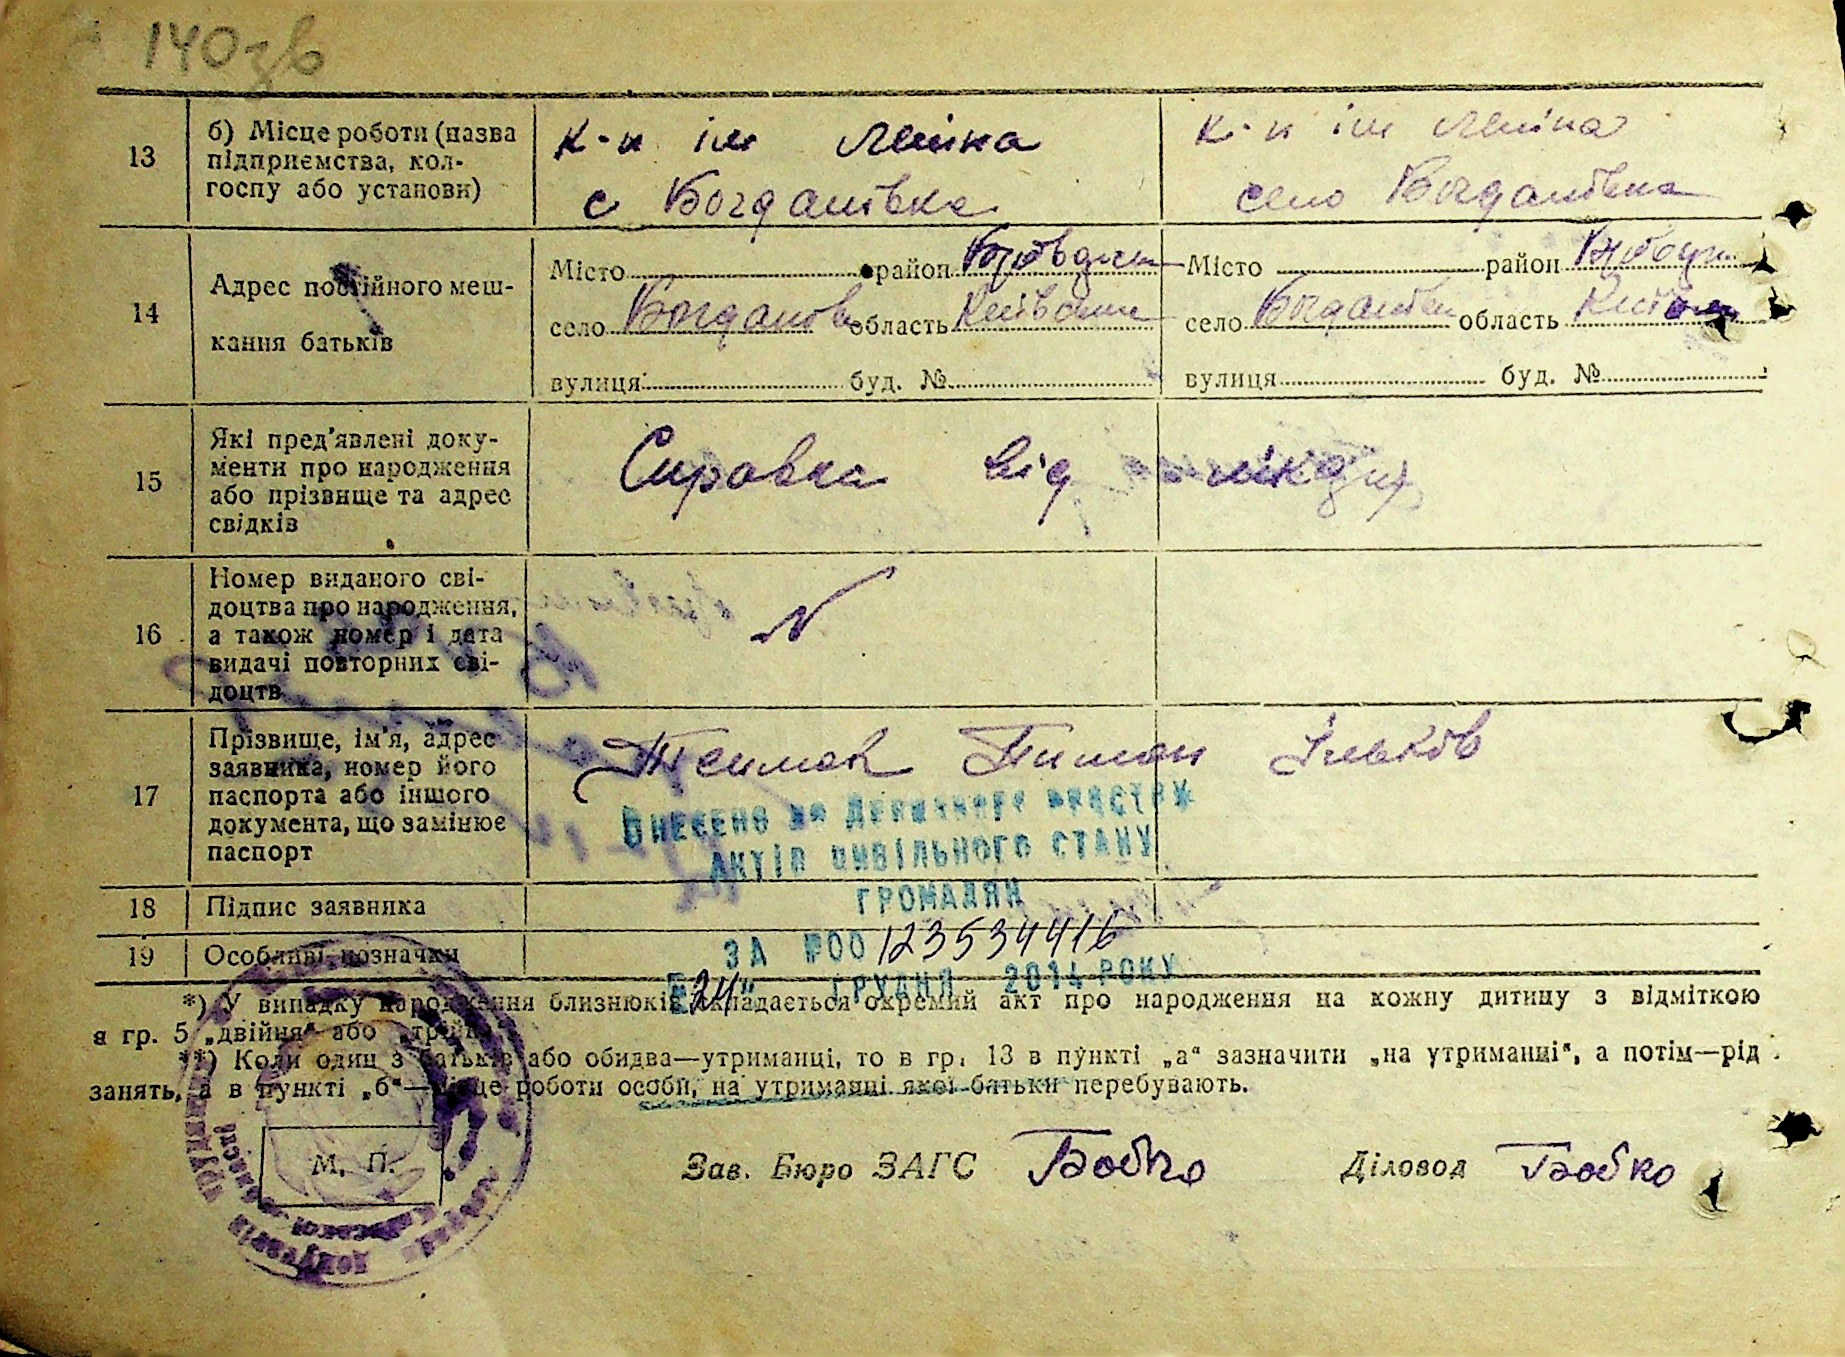 140зв
13
б) Місце роботи (назва
підприємства, кол-
госпу або установи)
к-п ім Леніна
с Богданівка
к-п ім Леніна
село Богданівка
14
Адрес постійного меш-
кання батьків
Місто район
село Богданівка область Київська
вулиця буд. №
Місто район
село Богданівка область
вулиця буд. №
15
Які пред'явлені доку-
менти про народження
або прізвище та адрес
свідків
Справка від
16
Номер виданого сві-
доцтва про народження,
а також номер і дата
видачі повторних сві-
доцтв
N
17
Прізвище, ім'я, адрес
заявника, номер його
паспорта або іншого
документа, що замінює
паспорт
Пиман Ільков
ВНЕСЕНО до ДЕРЖАВНОГО РЕЄСТРУ
АКТІВ ЦИВІЛЬНОГО СТАНУ
ГРОМАДЯН
18
Підпис заявника
19
Особливі позначки
ЗА №00123534416
"24" ГРУДНЯ 2014 РОКУ
*) У випадку народження близнюків складається окремий акт про народження на кожну дитину з відміткою
в гр. 5 „двійня" або „трійня"
**) Коли один з батьків або обидва—утриманці, то в гр. 13 в пункті „а" зазначити „на утриманні", а потім—рід
занять, а в пункті „б"—місце роботи особи, на утриманні якої батьки перебувають.
М. П.
Зав. Бюро ЗАГС Бобко
Діловод Бобко